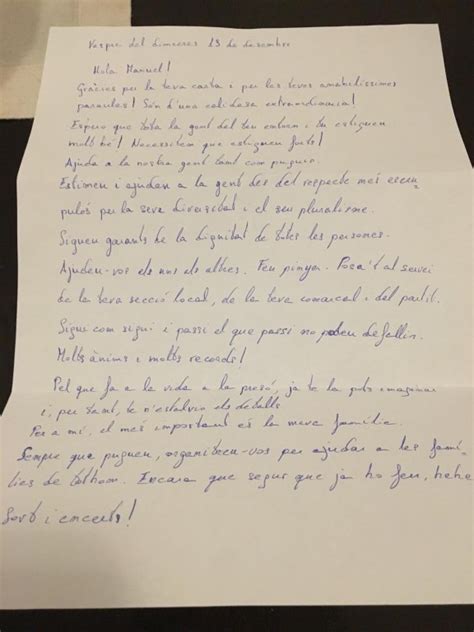 Vespre del dimecres 13 de desembre
Hola Manuel!
Gràcies per la teva carta i per les teves amabilíssimes
paraules! Són d'una calidesa extraordinària!
Espero que tota la gent del teu entorn i tu estigueu
molt bé! Necessitem que estigueu forts!
Ajuda a la nostra gent tant com puguis.
Estimeu i ajudeu a la gent des del respecte més escru-
pulós per la seva diversitat i el seu pluralisme.
Sigueu garants de la dignitat de totes les persones.
Ajudeu-vos els uns als altres. Feu pinya. Posa't al servei
de la teva secció local, de la teva comarcal i del partit.
Sigui com sigui i passi el que passi no podeu defallir.
Molts ànims i molts records!
Pel que fa a la vida a la presó, ja te la pots imaginar
i, per tant, te n'estalvio els detalls.
Per a mi, el més important és la meva família.
Sempre que pugueu, organitzeu-vos per ajudar a les famí-
lies de tothom. Encara que segur que ja ho feu, hehe
Sort i encerts!